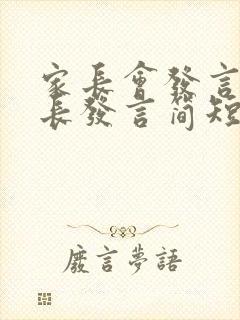 家长會發言
长發言简短
廢言夢語